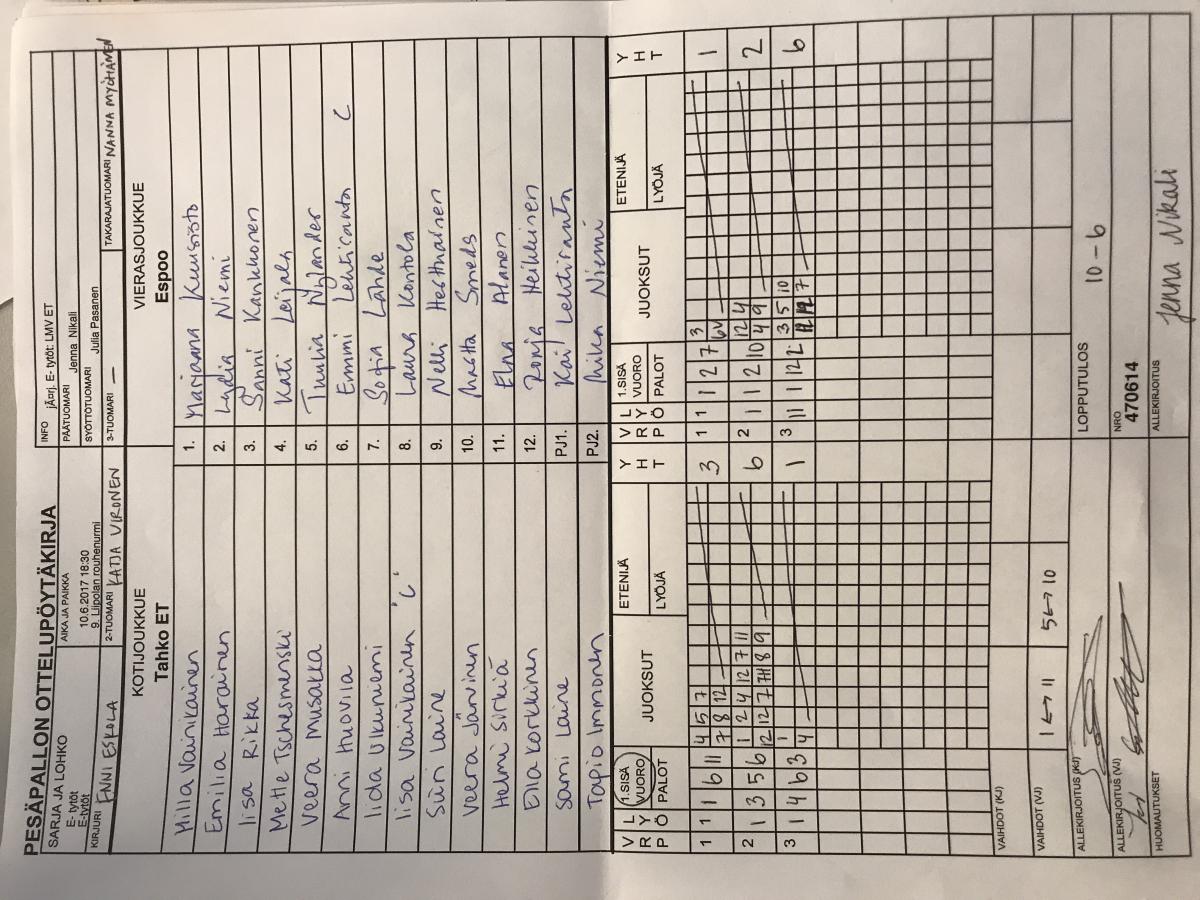 PESÄPALLON OTTELUPÖYTÄKIRJA
SARJA JA LOHKO
E- tytöt
E-tytöt
AIKA JA PAIKKA
10.6.2017 18:30
9. Liipolan rouhenurmi
INFO jÄ¤rj. E- tytöt: LMV ET
PÄÄTUOMARI Jenna Nikali
SYÖTTÖTUOMARI Julia Pasanen
KIRJURI ENNI ESKOLA
2-TUOMARI KATJA VIRONEN
3-TUOMARI —
TAKARAJATUOMARI NANNA MYÖHÄNEN
KOTIJOUKKUE
Tahko ET
VIERASJOUKKUE
Espoo
Milla Vainikainen 1. Marjaana Kuusisto
Emilia Harrainen 2. Lydia Niemi
Iisa Rikka 3. Sanni Kankkonen
Mette Tschesmenski 4. Kati Leijala
Veera Musakka 5. Tuulia Nylander
Anni Huovila 6. Emmi Lehtiranta C
Iida Ukurniemi 7. Sofia Lähde
Iisa Vainikainen 'C' 8. Laura Kontola
Siiri Laine 9. Nelli
Veera Järvinen 10. Smeds
Helmi Sirkiä 11. Elna Alanen
Ella Korkkinen 12. Ronja Heikkinen
Sami Laine PJ1. Kai Lehtiranta
Tapio Immonen PJ2. Mika Niemi
V R P
L Y Ö
1.SISÄ VUORO
PALOT
JUOKSUT
ETENIJÄ
LYÖJÄ
Y H T
V R P
L Y Ö
1.SISÄ VUORO
PALOT
JUOKSUT
ETENIJÄ
LYÖJÄ
Y H T
1 1 1 6 11 4 5 7 3 1 1 1 2 7 3 1
7 8 12 6V
2 1 3 5 6 1 2 4 12 7 11 6 2 1 1 2 10 12 4 2
12 12 7 7H 8 9 4 9
3 1 4 6 3 1 1 3 11 1 12 2 3 5 10 6
4 7
VAIHDOT (KJ)
VAIHDOT (VJ) 1↔11 5↔10
ALLEKIRJOITUS (KJ)
LOPPUTULOS 10-6
ALLEKIRJOITUS (VJ)
NRO
470614
HUOMAUTUKSET
ALLEKIRJOITUS
Jenna Nikali